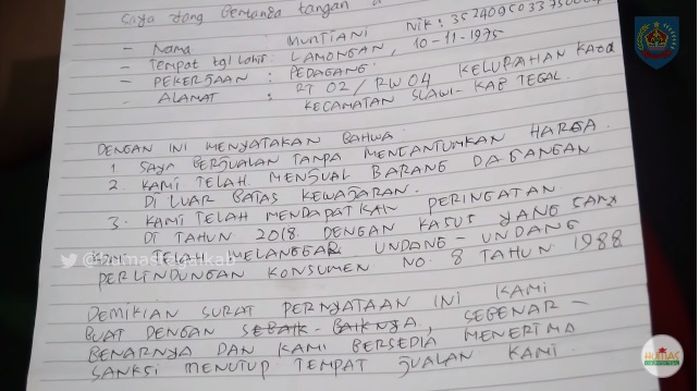 Saya yang bertanda tangan
- Nama : MUNTIANI NIK: 352409503375000
- Tempat tgl lahir : LAMONGAN, 10-11-1975
- PEKERJAAN : PEDAGANG.
- ALAMAT : RT 02 / RW 04 KELURAHAN
KECAMATAN SLAWI - KAB TEGAL
DENGAN INI MENYATAKAN BAHWA
1 SAYA BERJUALAN TANPA MENCANTUMKAN HARGA.
2. KAMI TELAH MENJUAL BARANG DAGANGAN
DI LUAR BATAS KEWAJARAN.
3. KAMI TELAH MENDAPATKAN PERINGATAN
DI TAHUN 2018 DENGAN KASUS YANG SAMA
TELAH MELANGGAR UNDANG-UNDANG
PERLINDUNGAN KONSUMEN NO. 8 TAHUN 1988
DEMIKIAN SURAT PERNYATAAN INI KAMI
BUAT DENGAN SEBAIK-BAIKNYA, SEBENAR-
BENARNYA DAN KAMI BERSEDIA MENERIMA
SANKSI MENUTUP TEMPAT JUALAN KAMI.
@humastegalkab
HUMAS